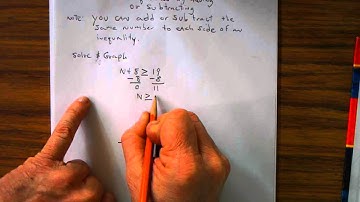 by Adding
or Subtracting
Note: You can add or subtract the
same number to each side of an
inequality.
Solve & Graph
N + 8 ≥ 19
-8 -8
0 11
N ≥